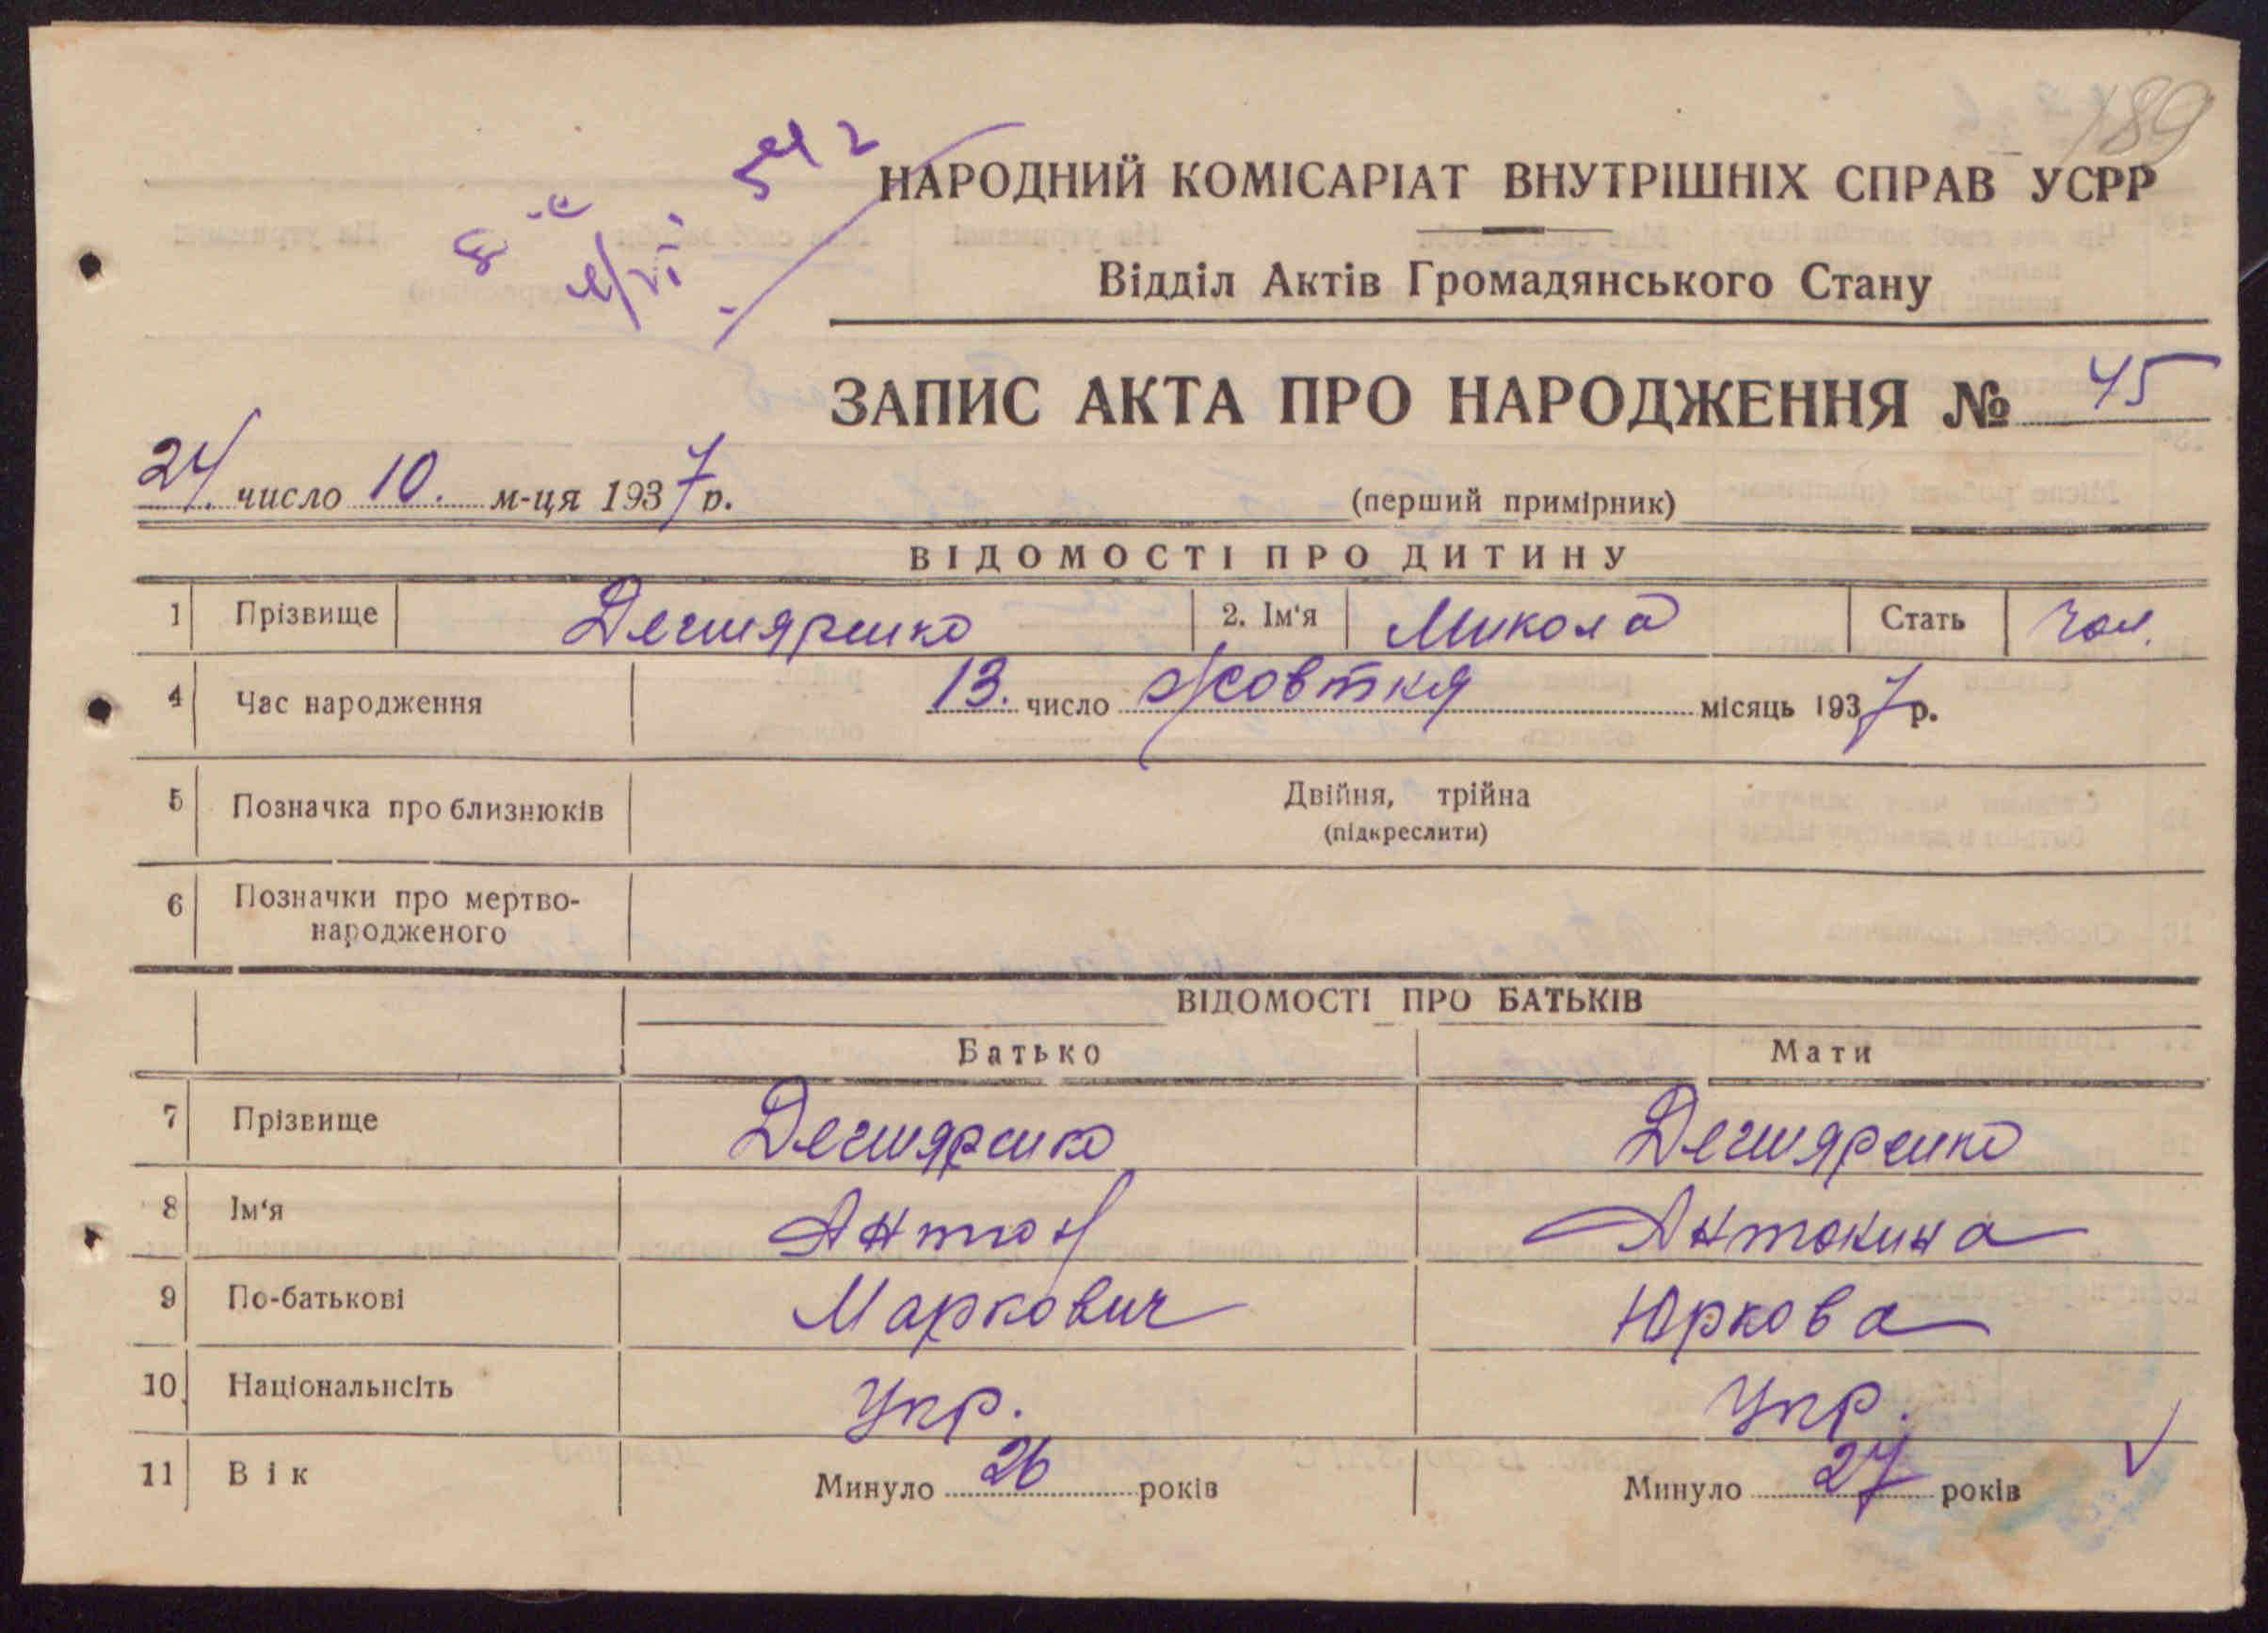 189
НАРОДНИЙ КОМІСАРІАТ ВНУТРІШНІХ СПРАВ УСРР
Відділ Актів Громадянського Стану
ЗАПИС АКТА ПРО НАРОДЖЕННЯ № 45
24. число 10. м-ця 1937 р.
(перший примірник)
ВІДОМОСТІ ПРО ДИТИНУ
1 Прізвище Дегтяренко 2. Ім‘я Микола Стать Чол.
4 Час народження 13. число Жовтня місяць 1937 р.
5 Позначка про близнюків Двійня, трійна
(підкреслити)
6 Позначки про мертво-
народженого
ВІДОМОСТІ ПРО БАТЬКІВ
Батько Мати
7 Прізвище Дегтяренко Дегтяренко
8 Ім‘я Антон Антонина
9 По-батькові Маркович Юркова
10 Національнсіть Укр. Укр.
11 Вік Минуло 26 років Минуло 27 років